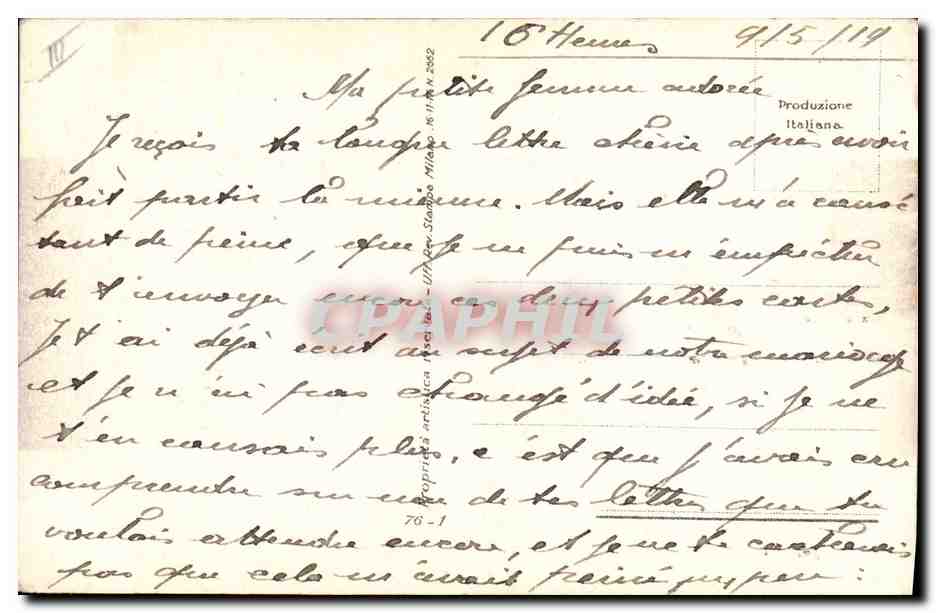 III
16 Heures 9/5/19
Ma petite femme adorée
Produzione
Italiana
Je reçois ta longue lettre chérie après avoir
fait partir la mienne. Mais elle m'a causé
tant de peine, que je ne puis m'empêcher
de t'envoyer encore ces deux petites cartes,
Je t'ai déjà écrit au sujet de notre mariage
et je n'ai pas changé d'idée, si je ne
t'en causais plus, c'est que j'avais cru
comprendre sur une de tes lettres que tu
voulais attendre encore, et je ne te cacherais
pas que cela m'avait peiné un peu :
Proprietà artistica riservata - Uff. Rev. Stampo Milano 16-11-18 N. 2662
76-1
CPAPHIL